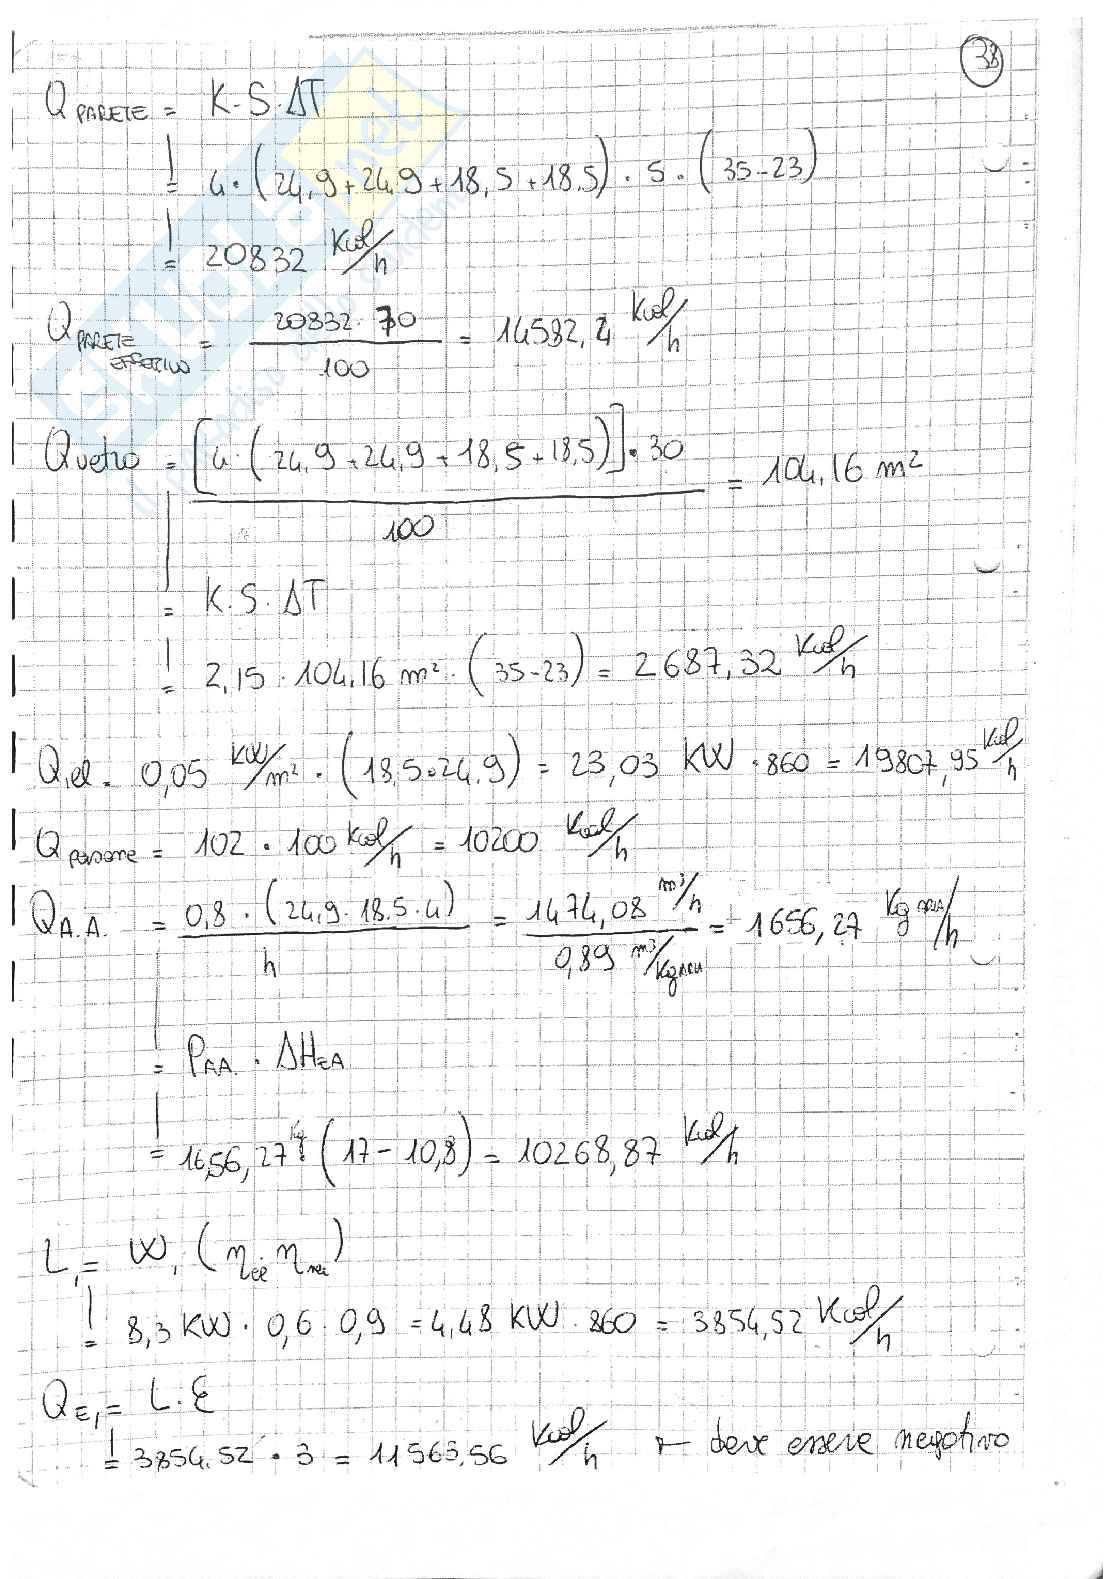 38
Q PARETE = K · S · ΔT
= 4 · (24,9 + 24,9 + 18,5 + 18,5) · 5 · (35 - 23)
= 20832 Kcal/h
Q PARETE EFFETTIVO = 20832 · 70 / 100 = 14582,4 Kcal/h
Q vetro = [4 · (24,9 + 24,9 + 18,5 + 18,5)] · 30 / 100 = 104,16 m²
= K · S · ΔT
= 2,15 · 104,16 m² · (35 - 23) = 2687,32 Kcal/h
Q el = 0,05 KW/m² · (18,5 · 24,9) = 23,03 KW · 860 = 19807,95 Kcal/h
Q persone = 102 · 100 Kcal/h = 10200 Kcal/h
Q A.A. = 0,8 · (24,9 · 18,5 · 4) / h = 1474,08 m³/h / 0,89 m³/Kg ARIA = 1656,27 Kg ARIA/h
= PAA · ΔHEA
= 1656,27 Kg · (17 - 10,8) = 10268,87 Kcal/h
L, = W, (η el · η )
= 8,3 KW · 0,6 · 0,9 = 4,48 KW · 860 = 3854,52 Kcal/h
Q E, = L · ε
= 3854,52 · 3 = 11563,56 Kcal/h ← deve essere negativo